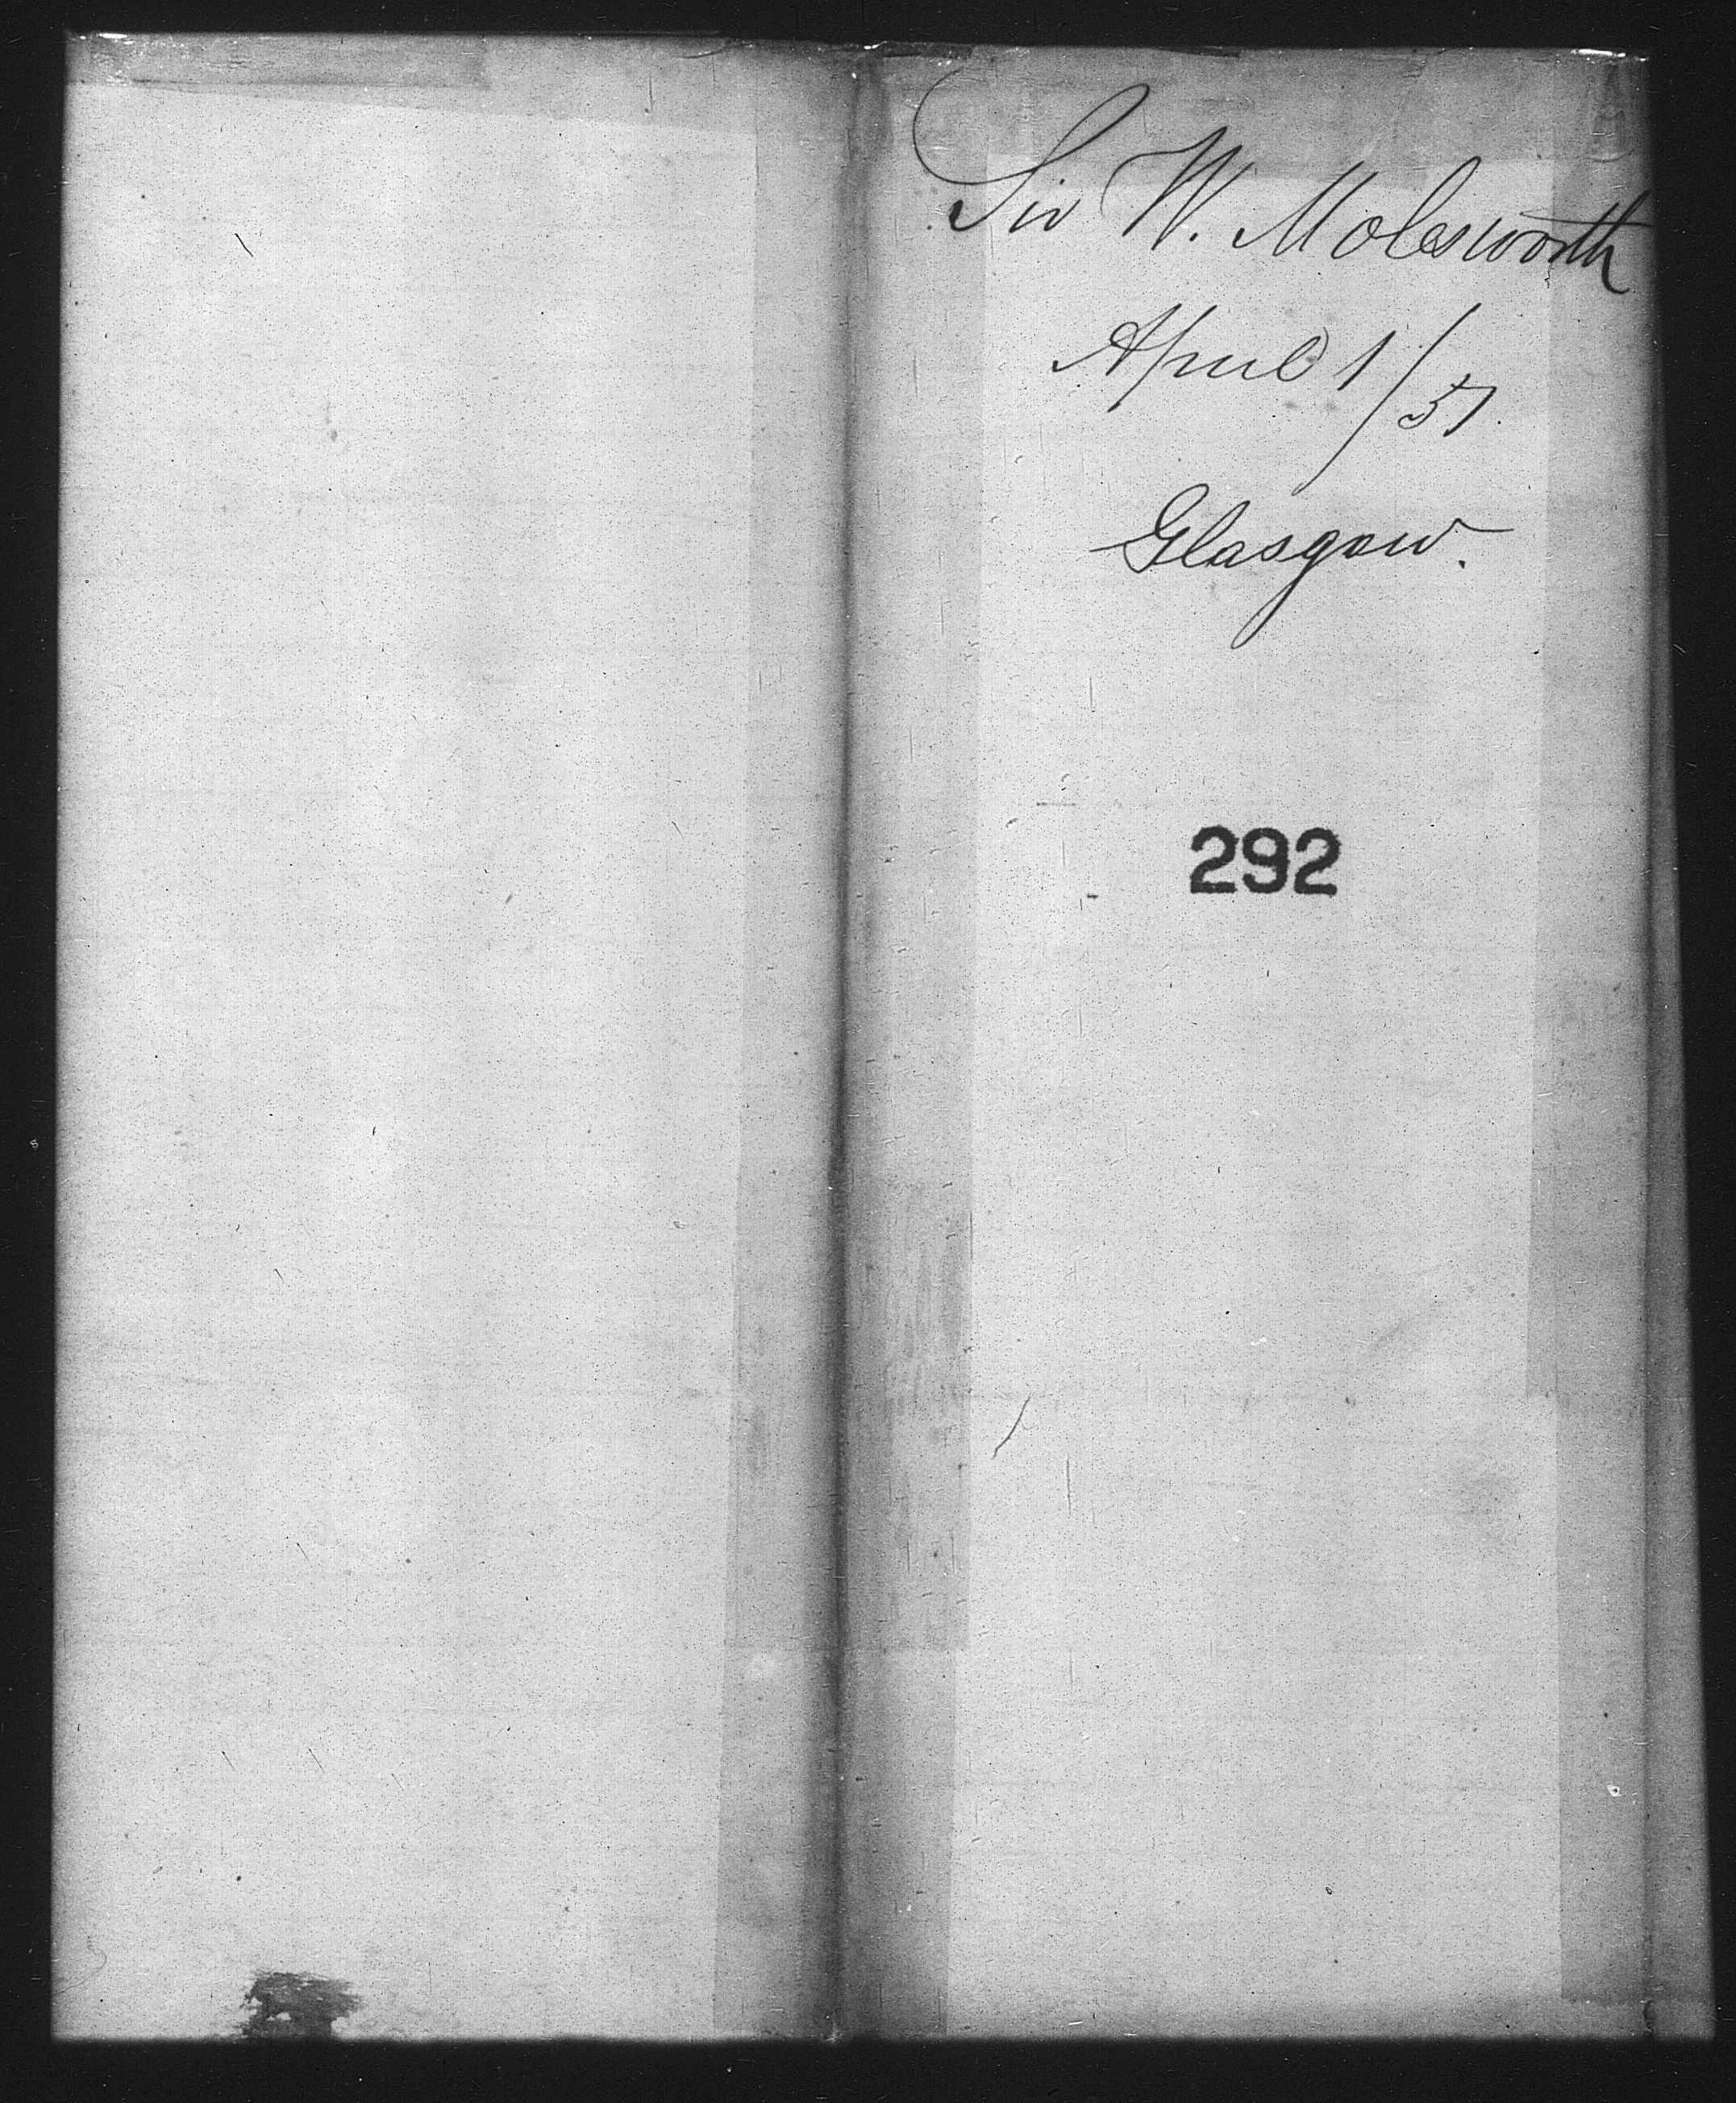 Sir W. Molesworth
April 1/51.
Glasgow.
292